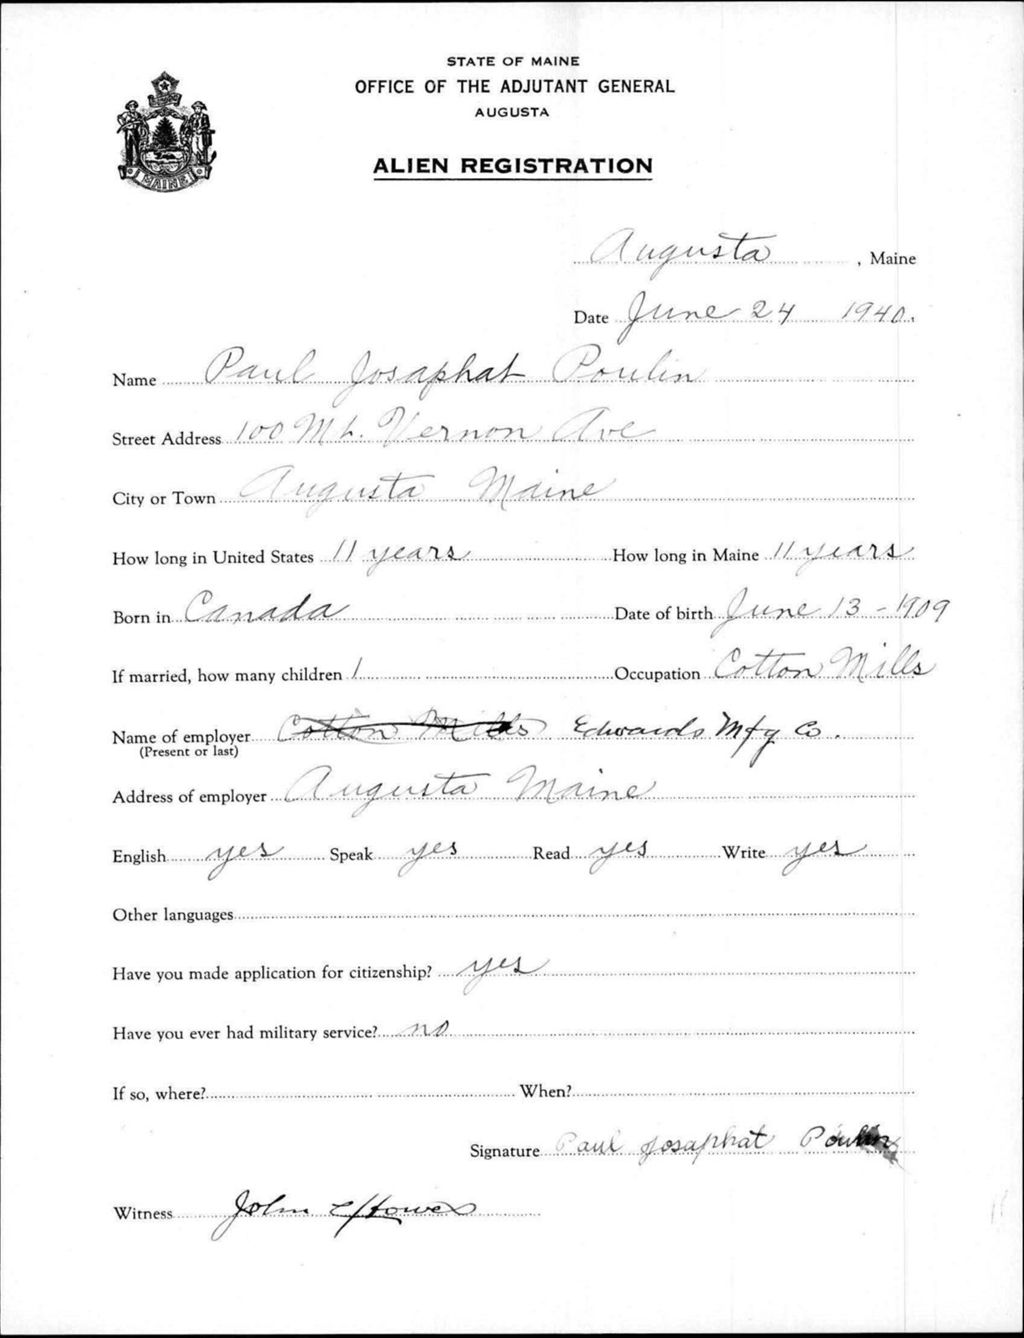 STATE OF MAINE
OFFICE OF THE ADJUTANT GENERAL
AUGUSTA
ALIEN REGISTRATION
MAINE
Augusta, Maine
Date June 24 1940.
Name Paul Josaphat Poulin
Street Address 100 Mt. Vernon Ave
City or Town Augusta Maine
How long in United States 11 years How long in Maine 11 years
Born in Canada Date of birth June 13 - 1909
If married, how many children 1 Occupation Cotton Mills
Name of employer Cotton Mills Edwards Mfg Co.
(Present or last)
Address of employer Augusta Maine
English yes Speak yes Read yes Write yes
Other languages
Have you made application for citizenship? yes
Have you ever had military service? no
If so, where? When?
Signature Paul Josaphat Poulin
Witness John Howes